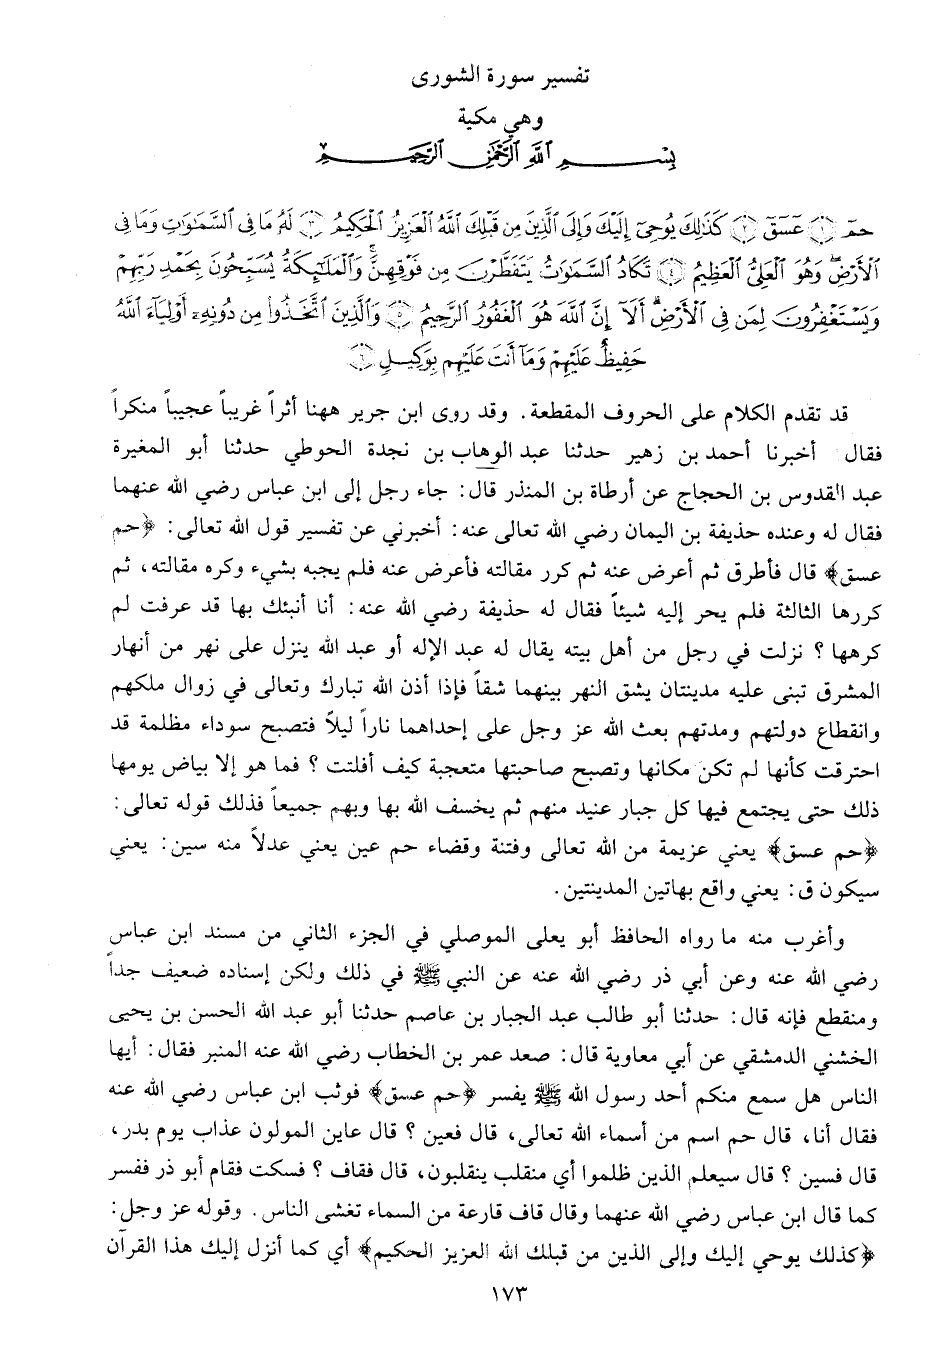 تفسير سورة الشورى
وهي مكية
بِسْمِ ٱللَّهِ ٱلرَّحْمَٰنِ ٱلرَّحِيمِ
حمٓ ﴿١﴾ عٓسٓقٓ ﴿٢﴾ كَذَٰلِكَ يُوحِىٓ إِلَيْكَ وَإِلَى ٱلَّذِينَ مِن قَبْلِكَ ٱللَّهُ ٱلْعَزِيزُ ٱلْحَكِيمُ ﴿٣﴾ لَهُۥ مَا فِى ٱلسَّمَٰوَٰتِ وَمَا فِى
ٱلْأَرْضِ ۖ وَهُوَ ٱلْعَلِىُّ ٱلْعَظِيمُ ﴿٤﴾ تَكَادُ ٱلسَّمَٰوَٰتُ يَتَفَطَّرْنَ مِن فَوْقِهِنَّ ۚ وَٱلْمَلَٰٓئِكَةُ يُسَبِّحُونَ بِحَمْدِ رَبِّهِمْ
وَيَسْتَغْفِرُونَ لِمَن فِى ٱلْأَرْضِ ۗ أَلَآ إِنَّ ٱللَّهَ هُوَ ٱلْغَفُورُ ٱلرَّحِيمُ ﴿٥﴾ وَٱلَّذِينَ ٱتَّخَذُوا۟ مِن دُونِهِۦٓ أَوْلِيَآءَ ٱللَّهُ
حَفِيظٌ عَلَيْهِمْ وَمَآ أَنتَ عَلَيْهِم بِوَكِيلٍ ﴿٦﴾
قد تقدم الكلام على الحروف المقطعة. وقد روى ابن جرير ههنا أثراً غريباً عجيباً منكراً
فقال أخبرنا أحمد بن زهير حدثنا عبد الوهاب بن نجدة الحوطي حدثنا أبو المغيرة
عبد القدوس بن الحجاج عن أرطاة بن المنذر قال: جاء رجل إلى ابن عباس رضي الله عنهما
فقال له وعنده حذيفة بن اليمان رضي الله تعالى عنه: أخبرني عن تفسير قول الله تعالى: ﴿حم
عسق﴾ قال فأطرق ثم أعرض عنه ثم كرر مقالته فأعرض عنه فلم يجبه بشيء وكره مقالته، ثم
كررها الثالثة فلم يحر إليه شيئاً فقال له حذيفة رضي الله عنه: أنا أنبئك بها قد عرفت لم
كرهها؟ نزلت في رجل من أهل بيته يقال له عبد الإله أو عبد الله ينزل على نهر من أنهار
المشرق تبنى عليه مدينتان يشق النهر بينهما شقاً فإذا أذن الله تبارك وتعالى في زوال ملكهم
وانقطاع دولتهم ومدتهم بعث الله عز وجل على إحداهما ناراً ليلاً فتصبح سوداء مظلمة قد
احترقت كأنها لم تكن مكانها وتصبح صاحبتها متعجبة كيف أفلتت؟ فما هو إلا بياض يومها
ذلك حتى يجتمع فيها كل جبار عنيد منهم ثم يخسف الله بها وبهم جميعاً فذلك قوله تعالى:
﴿حم عسق﴾ يعني عزيمة من الله تعالى وفتنة وقضاء حم عين يعني عدلاً منه سين: يعني
سيكون ق: يعني واقع بهاتين المدينتين.
وأغرب منه ما رواه الحافظ أبو يعلى الموصلي في الجزء الثاني من مسند ابن عباس
رضي الله عنه وعن أبي ذر رضي الله عنه عن النبي ﷺ في ذلك ولكن إسناده ضعيف جداً
ومنقطع فإنه قال: حدثنا أبو طالب عبد الجبار بن عاصم حدثنا أبو عبد الله الحسن بن يحيى
الخشني الدمشقي عن أبي معاوية قال: صعد عمر بن الخطاب رضي الله عنه المنبر فقال: أيها
الناس هل سمع منكم أحد رسول الله ﷺ يفسر ﴿حم عسق﴾ فوثب ابن عباس رضي الله عنه
فقال أنا، قال حم اسم من أسماء الله تعالى، قال فعين؟ قال عاين المولون عذاب يوم بدر،
قال فسين؟ قال سيعلم الذين ظلموا أي منقلب ينقلبون، قال فقاف؟ فسكت فقام أبو ذر ففسر
كما قال ابن عباس رضي الله عنهما وقال قاف قارعة من السماء تغشى الناس. وقوله عز وجل:
﴿كذلك يوحي إليك وإلى الذين من قبلك الله العزيز الحكيم﴾ أي كما أنزل إليك هذا القرآن
١٧٣